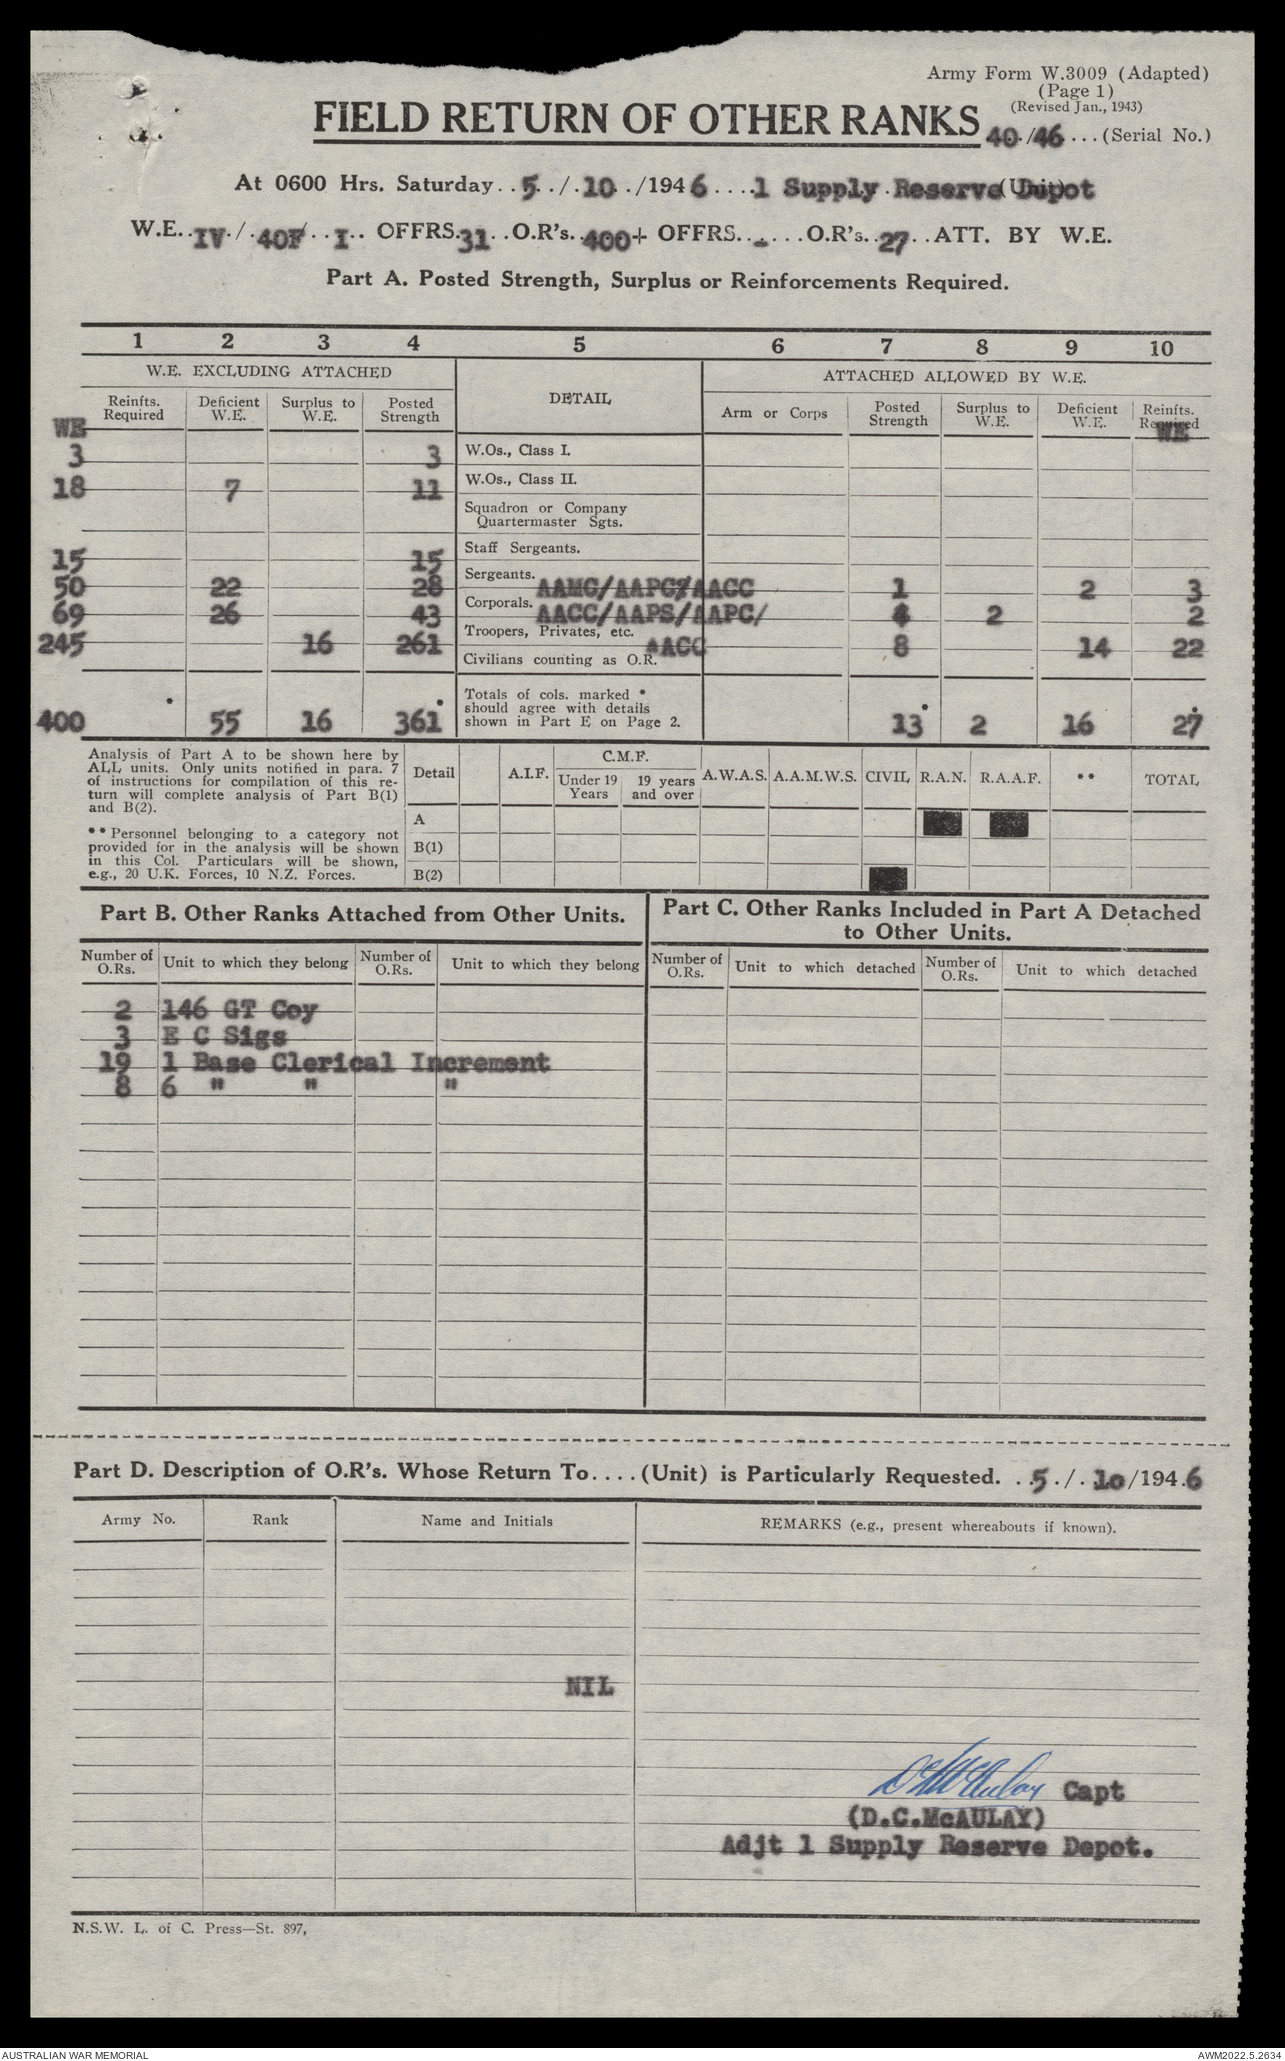 Army Form W.3009 (Adapted)
(Page 1)
(Revised Jan., 1943)
FIELD RETURN OF OTHER RANKS
40./46...(Serial No.)
At 0600 Hrs. Saturday..5../.10../1946....1 Supply Reserve Depot (Unit)
W.E..IV./.40F/..I.. OFFRS.31..O.R's..400+ OFFRS..-...O.R's..27..ATT. BY W.E.
Part A. Posted Strength, Surplus or Reinforcements Required.
1 2 3 4 5 6 7 8 9 10
W.E. EXCLUDING ATTACHED DETAIL ATTACHED ALLOWED BY W.E.
Reinfts. Required Deficient W.E. Surplus to W.E. Posted Strength Arm or Corps Posted Strength Surplus to W.E. Deficient W.E. Reinfts. Required
WE WE
3 3 W.Os., Class I.
18 7 11 W.Os., Class II.
Squadron or Company
Quartermaster Sgts.
15 15 Staff Sergeants.
50 22 28 Sergeants. AAMC/AAPC/AACC 1 2 3
69 26 43 Corporals. AACC/AAPS/AAPC/ 4 2 2
245 16 261 Troopers, Privates, etc. AACC 8 14 22
Civilians counting as O.R.
* * * *
Totals of cols. marked *
should agree with details
400 55 16 361 shown in Part E on Page 2. 13 2 16 27
Analysis of Part A to be shown here by
ALL units. Only units notified in para. 7
of instructions for compilation of this re-
turn will complete analysis of Part B(1)
and B(2).
** Personnel belonging to a category not
provided for in the analysis will be shown
in this Col. Particulars will be shown,
e.g., 20 U.K. Forces, 10 N.Z. Forces.
C.M.F.
Detail A.I.F. Under 19 Years 19 years and over A.W.A.S. A.A.M.W.S. CIVIL R.A.N. R.A.A.F. ** TOTAL
A
B(1)
B(2)
Part B. Other Ranks Attached from Other Units.
Part C. Other Ranks Included in Part A Detached
to Other Units.
Number of O.Rs. Unit to which they belong Number of O.Rs. Unit to which they belong Number of O.Rs. Unit to which detached Number of O.Rs. Unit to which detached
2 146 GT Coy
3 E C Sigs
19 1 Base Clerical Increment
8 6 " " "
Part D. Description of O.R's. Whose Return To....(Unit) is Particularly Requested. ..5./.10/194.6
Army No. Rank Name and Initials REMARKS (e.g., present whereabouts if known).
NIL
D C McAulay Capt
(D.C.McAULAY)
Adjt 1 Supply Reserve Depot.
N.S.W. L. of C. Press—St. 897,
AUSTRALIAN WAR MEMORIAL
AWM2022.5.2634